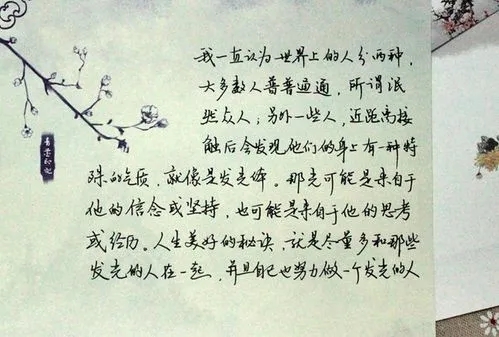 我一直认为世界上的人分两种，
大多数人普普通通，所谓泯
然众人；另外一些人，近距离接
触后会发现他们的身上有一种特
殊的气质，就像是发光体。那光可能是来自于
他的信念或坚持，也可能是来自于他的思考
或经历。人生美好的秘诀，就是尽量多和那些
发光的人在一起，并且自己也努力做一个发光的人